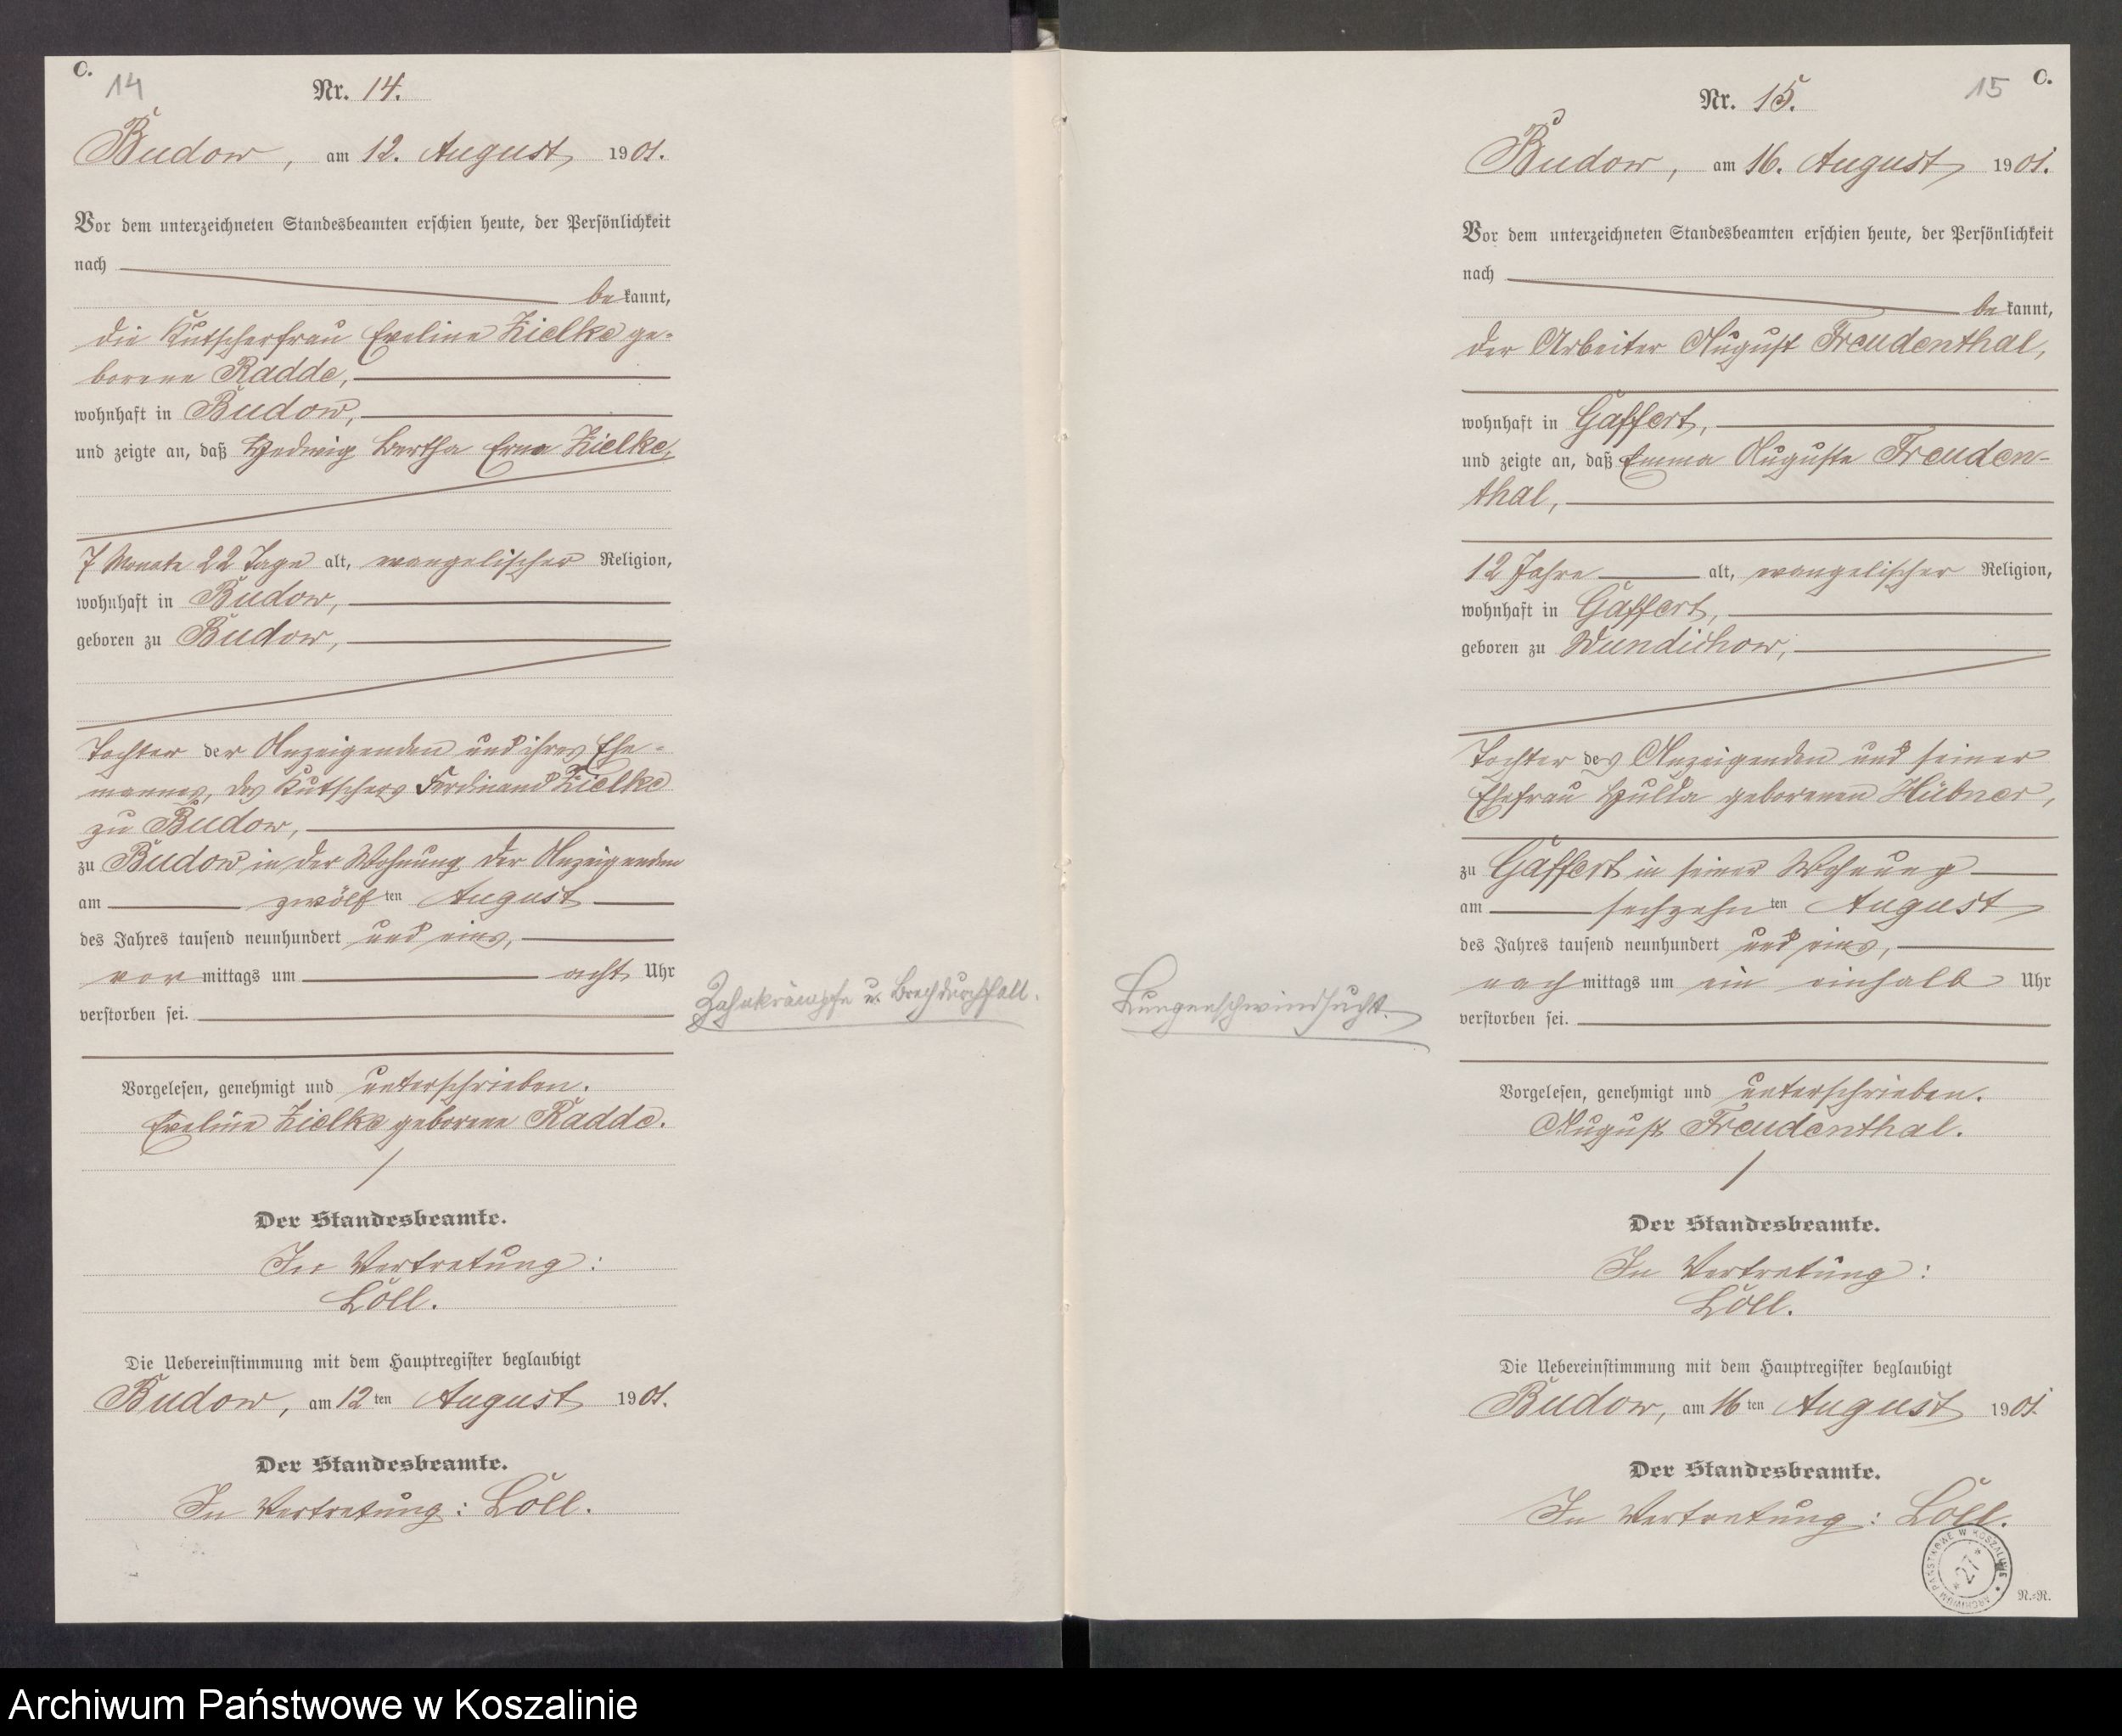 C.
14
Nr. 14.
Budow, am 12. August 1901.
Vor dem unterzeichneten Standesbeamten erschien heute, der Persönlichkeit
nach
bekannt,
die Kutscherfrau Eveline Zielke ge-
borene Radde,
wohnhaft in Budow,
und zeigte an, daß Hedwig Bertha Erna Zielke,
7 Monate 22 Tage alt, evangelischer Religion,
wohnhaft in Budow,
geboren zu Budow,
Tochter der Anzeigenden und ihres Ehe-
mannes, des Kutschers Ferdinand Zielke
zu Budow,
zu Budow in der Wohnung der Anzeigenden
am zwölften August
des Jahres tausend neunhundert und eins,
vormittags um acht Uhr
verstorben sei.
Zahnkrämpfe u. Brechdurchfall.
Vorgelesen, genehmigt und unterschrieben.
Eveline Zielke geborene Radde.
Der Standesbeamte.
In Vertretung:
Löll.
Die Uebereinstimmung mit dem Hauptregister beglaubigt
Budow, am 12ten August 1901.
Der Standesbeamte.
In Vertretung: Löll.
C.
15
Nr. 15.
Budow, am 16. August 1901.
Vor dem unterzeichneten Standesbeamten erschien heute, der Persönlichkeit
nach
bekannt,
der Arbeiter August Freudenthal,
wohnhaft in Gaffert,
und zeigte an, daß Emma Auguste Freuden-
thal,
12 Jahre alt, evangelischer Religion,
wohnhaft in Gaffert,
geboren zu Wundichow,
Tochter des Anzeigenden und seiner
Ehefrau Hulda geborenen Hübner,
zu Gaffert in seiner Wohnung
am sechzehnten August
des Jahres tausend neunhundert und eins,
nachmittags um ein einhalb Uhr
verstorben sei.
Lungenschwindsucht.
Vorgelesen, genehmigt und unterschrieben.
August Freudenthal.
Der Standesbeamte.
In Vertretung:
Löll.
Die Uebereinstimmung mit dem Hauptregister beglaubigt
Budow, am 16ten August 1901.
Der Standesbeamte.
In Vertretung: Löll.
ARCHIWUM PAŃSTWOWE W KOSZALINIE
*27*
N.-N.
Archiwum Państwowe w Koszalinie